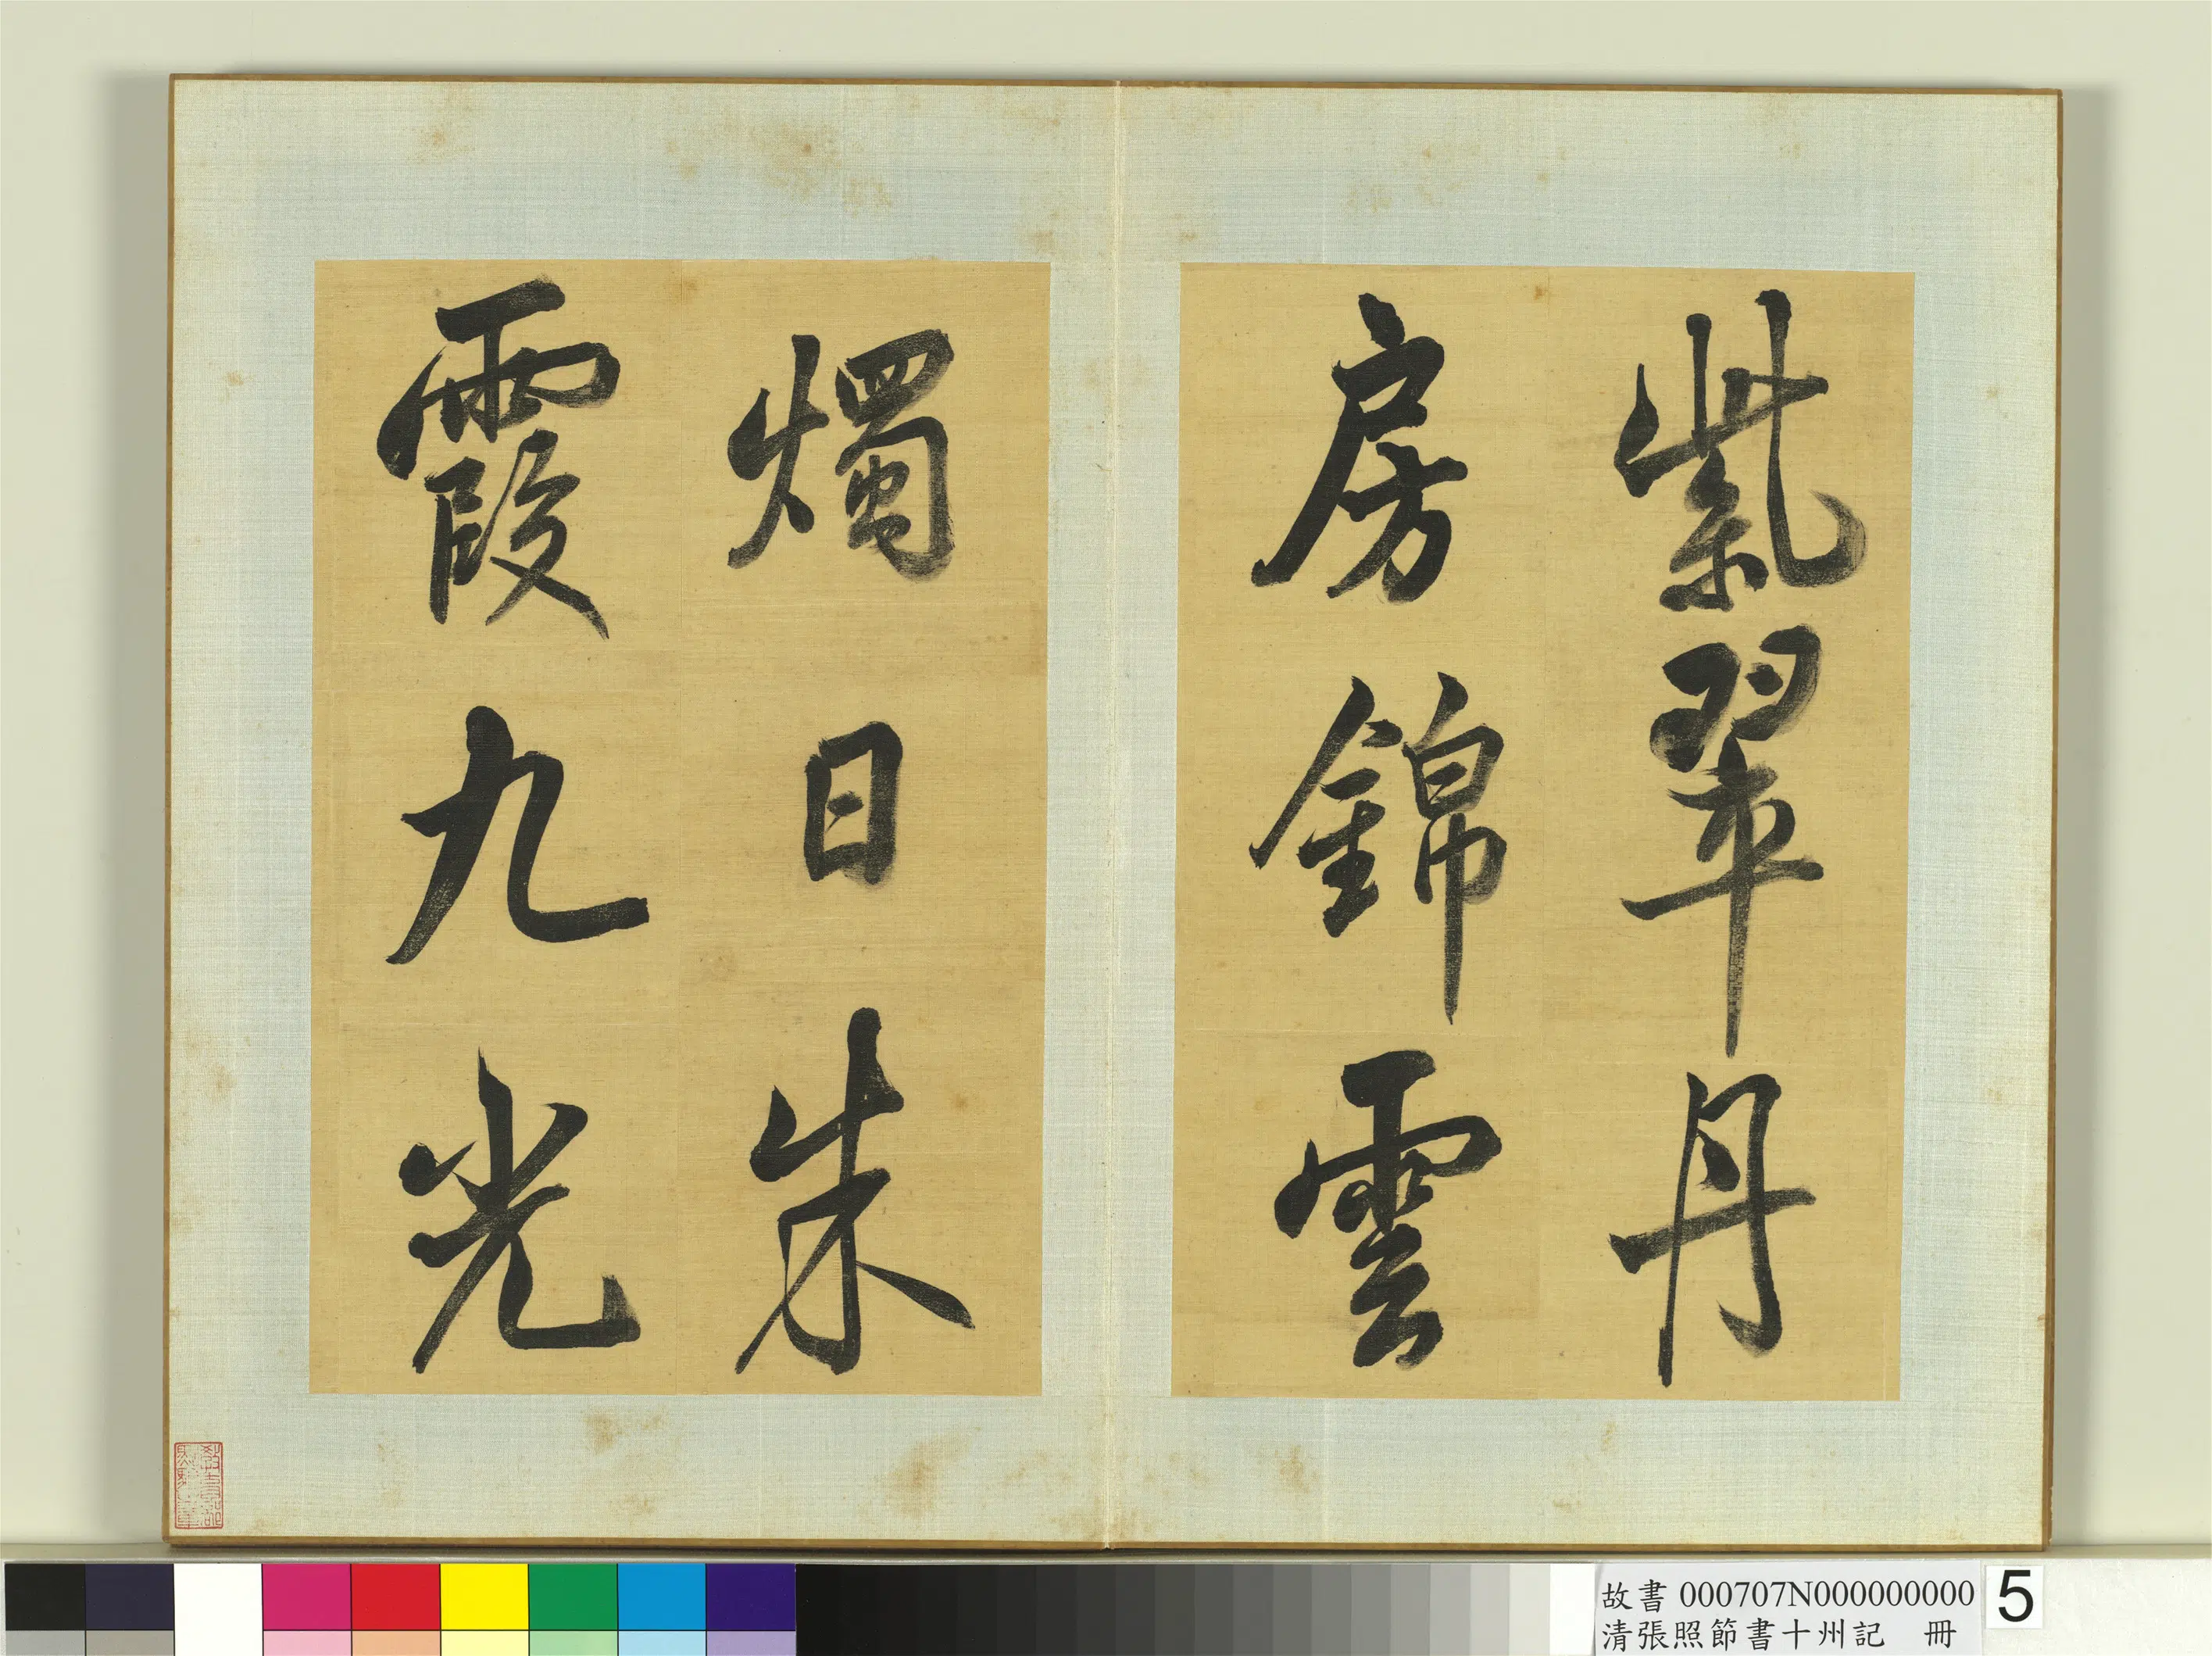 紫翠丹
房錦雲
燭日朱
霞九光
故書 000707N000000000
清張照節書十州記　冊
5